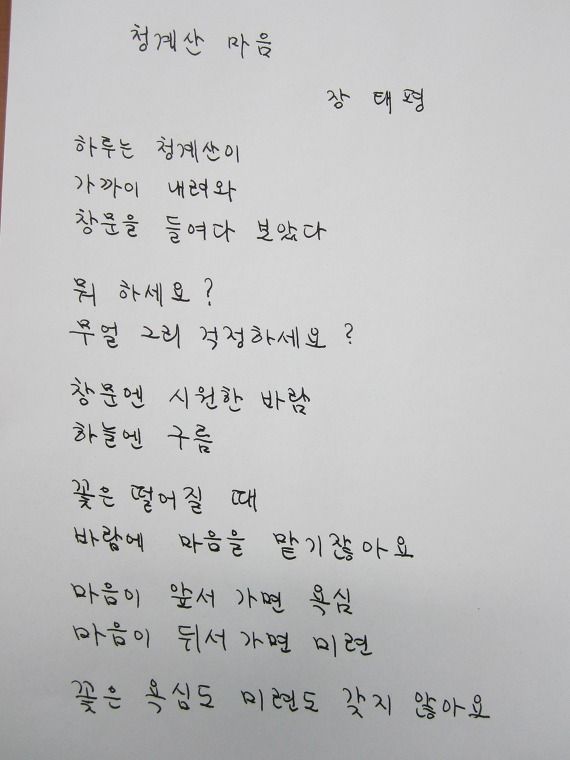 청계산 마음
장 태평
하루는 청계산이
가까이 내려와
창문을 들여다 보았다
뭐 하세요?
무얼 그리 걱정하세요?
창문엔 시원한 바람
하늘엔 구름
꽃은 떨어질 때
바람에 마음을 맡기잖아요
마음이 앞서 가면 욕심
마음이 뒤서 가면 미련
꽃은 욕심도 미련도 갖지 않아요